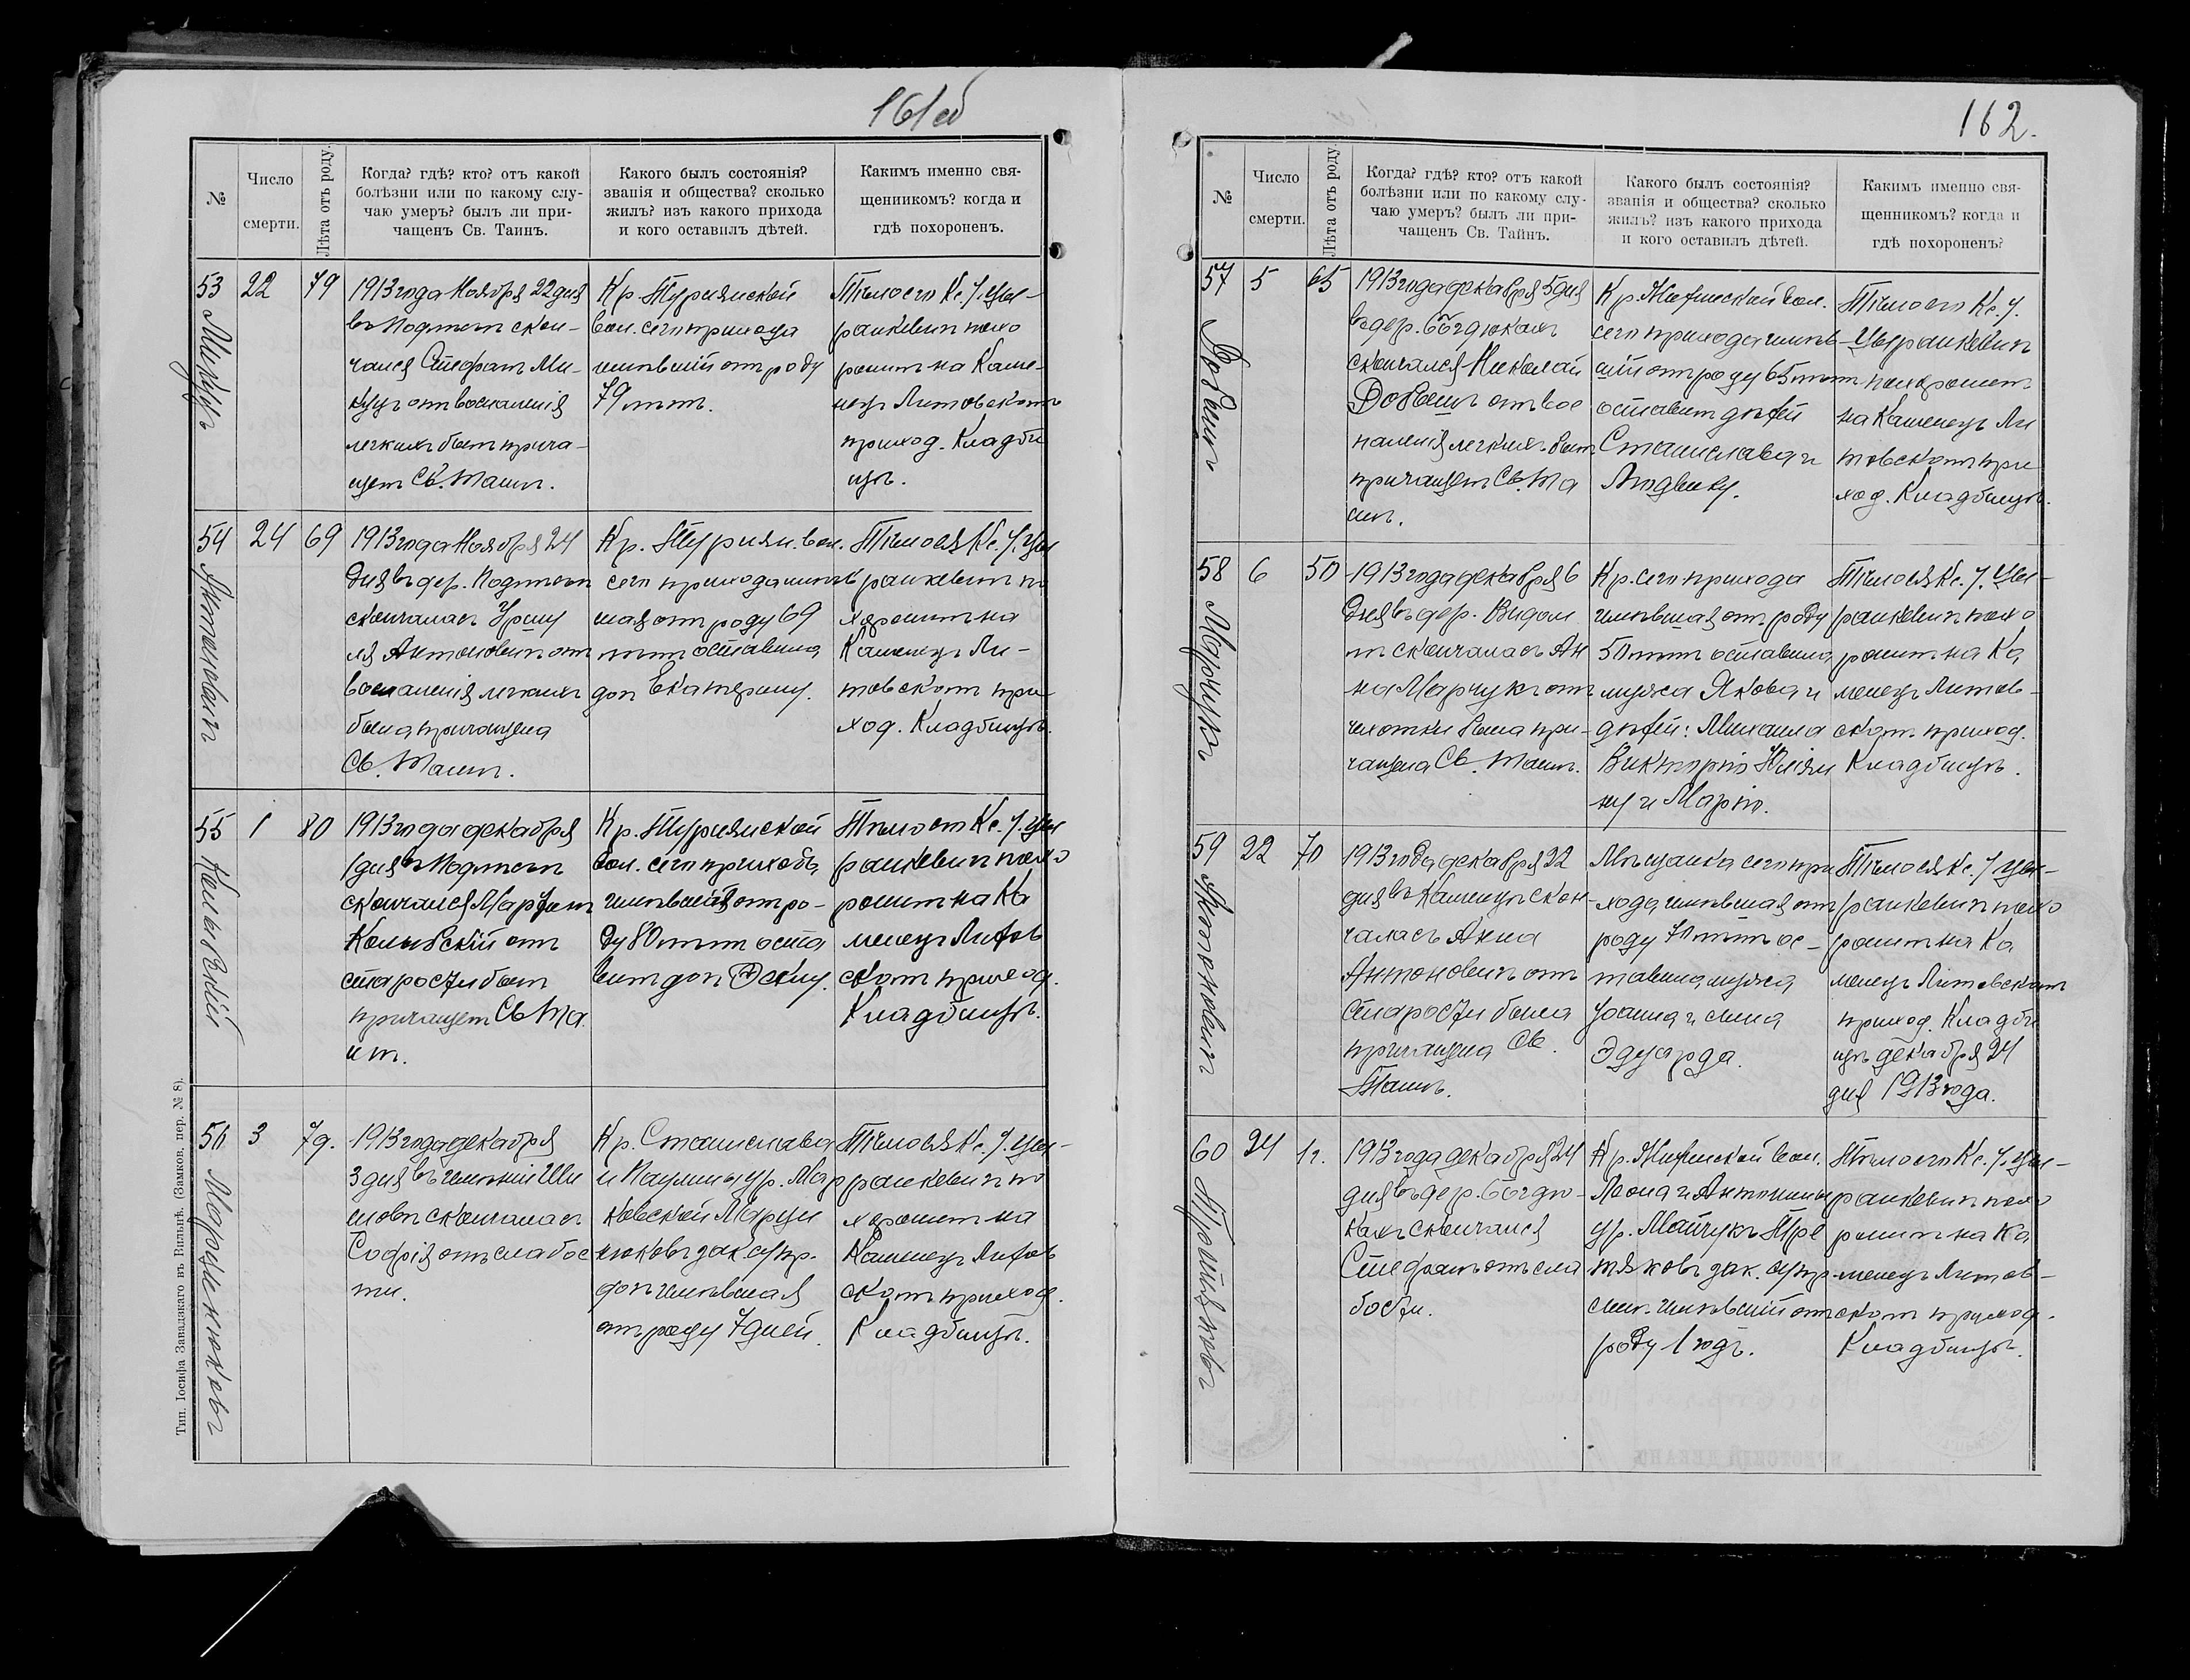 161об
№
Число
смерти.
Лѣта отъ роду.
Когда? гдѣ? кто? отъ какой
болѣзни или по какому слу-
чаю умеръ? былъ ли при-
чащенъ Св. Таинъ.
Какого былъ состоянія?
званія и общества? сколько
жилъ? изъ какого прихода
и кого оставилъ дѣтей.
Какимъ именно свя-
щенникомъ? когда и
гдѣ похороненъ.
53
Микуць
22
79
1913 года Ноября 22 дня
въ скон-
чался Стефанъ Ми-
куць отъ воспаленія
легкихъ былъ прича-
щенъ Св. Таинъ.
Кр. Турнянской
вол. сего прихода
жившій отъ роду
79 лѣтъ.
Тѣло его Кс. І. Цы-
ранкевичъ похо
ронилъ на Каме-
нецъ Литовскомъ
приход. Кладби
щѣ.
54
Антоновичъ
24
69
1913 года Ноября 24
дня въ дер.
скончалась Уршу
ля Антоновичъ отъ
воспаленія легкихъ
была причащена
Св. Таинъ.
Кр. Турнян. вол.
сего прихода жив
шая отъ роду 69
лѣтъ оставила
дочь Екатерину.
Тѣло ея Кс. І. Цы
ранкевичъ по
хоронилъ на
Каменецъ Ли-
товскомъ при
ход. Кладбищѣ.
55
1
80
1913 года декабря
1 дня въ
скончался
отъ
старости былъ
причащенъ Св. Та
инъ.
Кр. Турнянской
вол. сего прихода
отъ ро-
ду 80 лѣтъ оста
вилъ дочь
Тѣло его Кс. І. Цы
ранкевичъ похо
ронилъ на Ка
менецъ Литов
скомъ приход.
Кладбищѣ.
56
Марценюковъ
3
7д.
1913 года декабря
3 дня въ имѣніи
скончалась
Софія отъ слабос
ти.
Кр. Станислава
и Паулины ур. Мар
ковской Марце
нюковъ зак. супр.
дочь жившая
отъ роду 7 дней.
Тѣло ея Кс. І. Цы-
ранкевичъ по
хоронилъ на
Каменецъ Литов
скомъ приход.
Кладбищѣ.
Тип. Іосифа Завадзкаго въ Вильнѣ. (Замков. пер. № 8).
162.
№
Число
смерти.
Лѣта отъ роду.
Когда? гдѣ? кто? отъ какой
болѣзни или по какому слу-
чаю умеръ? былъ ли при-
чащенъ Св. Таинъ.
Какого былъ состоянія?
званія и общества? сколько
жилъ? изъ какого прихода
и кого оставилъ дѣтей.
Какимъ именно свя-
щенникомъ? когда и
гдѣ похороненъ?
57
5
65
1913 года декабря 5 дня
въ дер. Богдюкахъ
скончался Николай
отъ вос
паленія легкихъ былъ
причащенъ Св. Та
инъ.
Кр. вол.
сего прихода жив-
шій отъ роду 65 лѣтъ
оставилъ дѣтей
Станислава и
Людвику.
Тѣло его Кс. І.
Цыранкевичъ
похоронилъ
на Каменецъ Ли
товскомъ при
ход. Кладбищѣ.
58
Марчукъ
6
50
1913 года декабря 6
дня въ дер. Видом
лѣ скончалась Ан
на Марчукъ отъ
чахотки была при-
чащена Св. Таинъ.
Кр. сего прихода
жившая отъ роду
50 лѣтъ оставила
мужа Якова и
дѣтей: Михаила
Викторію Юліян
ну и Марію.
Тѣло ея Кс. І. Цы-
ранкевичъ похо
ронилъ на Ка
менецъ Литов-
скомъ приход.
Кладбищѣ.
59
Антоновичъ
22
70
1913 года декабря 22
дня въ Каменцѣ скон-
чалась Анна
Антоновичъ отъ
старости была
причащена Св.
Таинъ.
Мѣщанка сего при
хода жившая отъ
роду 70 лѣтъ ос-
тавила мужа
Іоанна и сына
Эдуарда.
Тѣло ея Кс. І. Цы-
ранкевичъ похо
ронилъ на Ка
менецъ Литовскомъ
приход. Кладби
щѣ декабря 24
дня 1913 года.
60
24
1г.
1913 года декабря 24
дня въ дер. Богдю-
кахъ скончался
Стефанъ отъ сла
бости.
Кр. вол.
Леона и Антонины
ур. Майчукъ
зак. супр.
сынъ жившій отъ
роду 1 годъ.
Тѣло его Кс. І. Цы-
ранкевичъ похо
ронилъ на Ка
менецъ Литов-
скомъ приход.
Кладбищѣ.